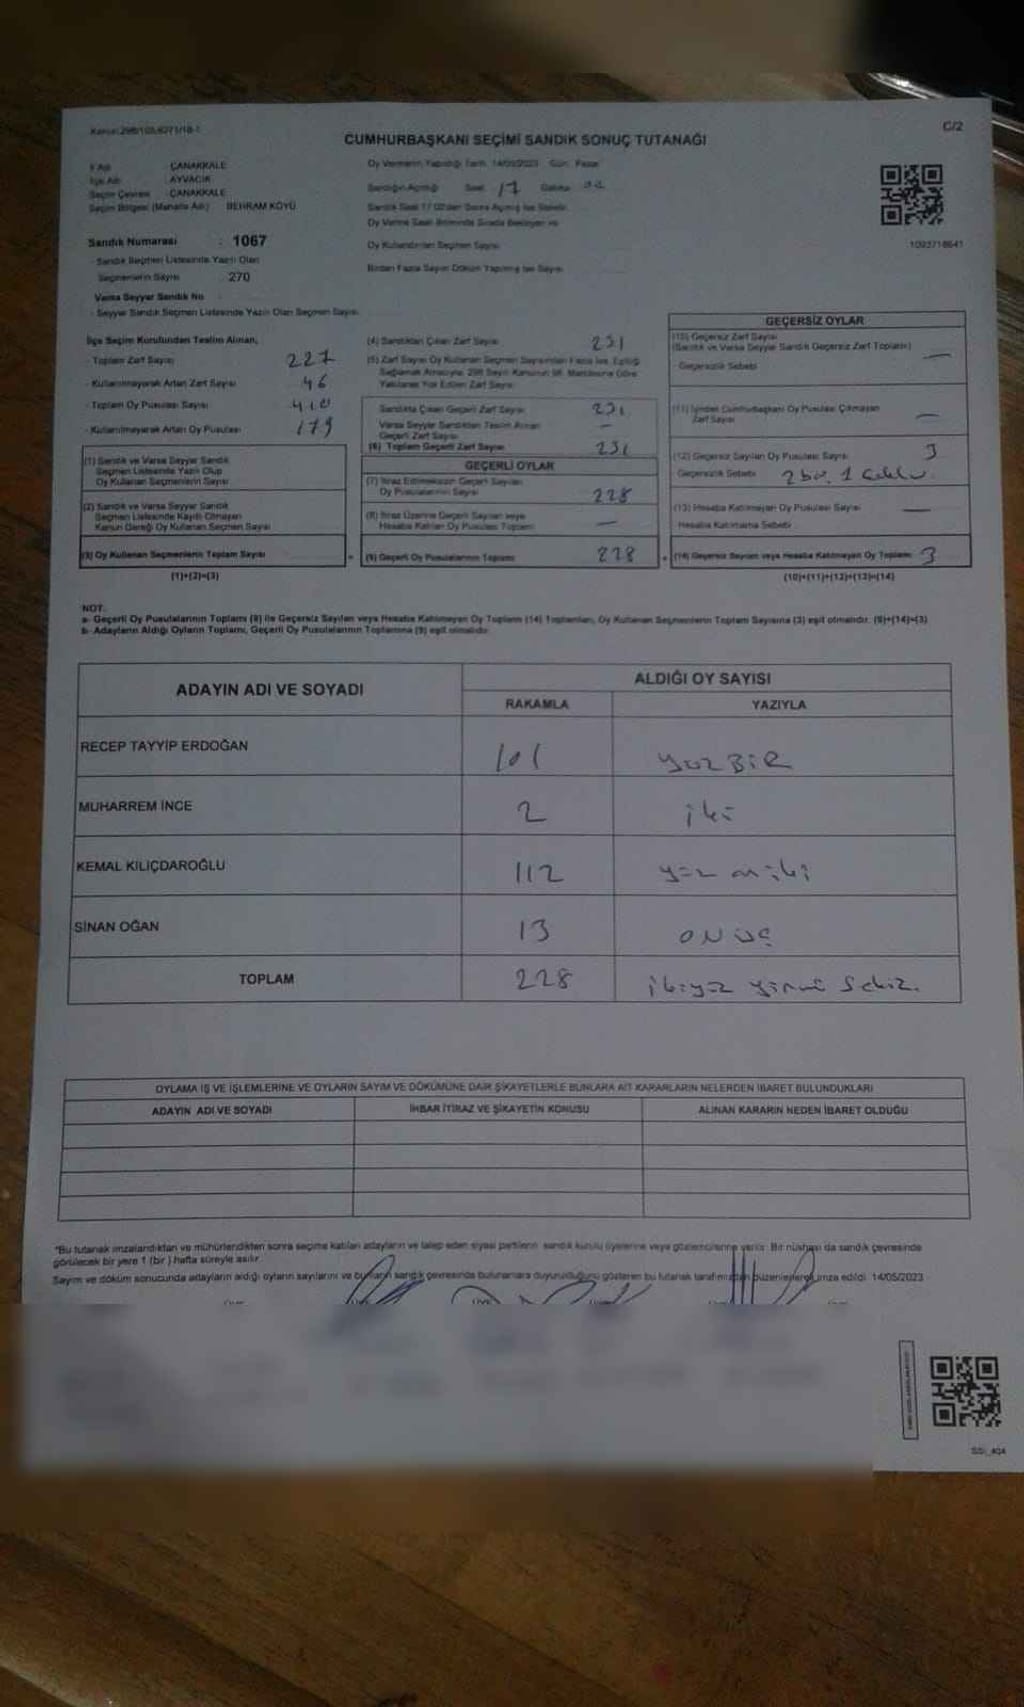 CUMHURBAŞKANI SEÇİMİ SANDIK SONUÇ TUTANAĞI
C/2
İl Adı : ÇANAKKALE
İlçe Adı : AYVACIK
Seçim Çevresi : ÇANAKKALE
Seçim Bölgesi (Mahalle Adı) BEHRAM KÖYÜ
Oy Vermenin Yapıldığı Tarih: 14/05/2023 Gün: Pazar
Sandığın Açıldığı Saat: 17 Dakika:
1093718641
Sandık Numarası : 1067
- Sandık Seçmen Listesinde Yazılı Olan
Seçmenlerin Sayısı 270
Varsa Seyyar Sandık No
- Seyyar Sandık Seçmen Listesinde Yazılı Olan Seçmen Sayısı
Oy Kullandırılan Seçmen Sayısı
Birden Fazla Sayım Döküm Yapılmış ise Sayısı
İlçe Seçim Kurulundan Teslim Alınan,
- Toplam Zarf Sayısı 227
- Kullanılmayarak Artan Zarf Sayısı 46
- Toplam Oy Pusulası Sayısı 410
- Kullanılmayarak Artan Oy Pusulası 179
(1) Sandık ve Varsa Seyyar Sandık
Seçmen Listesinde Yazılı Olup
Oy Kullanan Seçmenlerin Sayısı
(2) Sandık ve Varsa Seyyar Sandık
Seçmen Listesinde Kayıtlı Olmayan
Kanun Gereği Oy Kullanan Seçmen Sayısı
(3) Oy Kullanan Seçmenlerin Toplam Sayısı
(1)+(2)=(3)
(4) Sandıktan Çıkan Zarf Sayısı 231
Sandıkta Çıkan Geçerli Zarf Sayısı 231
Varsa Seyyar Sandıktan Teslim Alınan
Geçerli Zarf Sayısı —
(6) Toplam Geçerli Zarf Sayısı 231
GEÇERLİ OYLAR
(7) İtiraz Edilmeksizin Geçerli Sayılan
Oy Pusulalarının Sayısı 228
(8) İtiraz Üzerine Geçerli Sayılan veya
Hesaba Katılan Oy Pusulası Toplamı —
(9) Geçerli Oy Pusulalarının Toplamı 228
GEÇERSİZ OYLAR
(10) Geçersiz Zarf Sayısı
(Sandık ve Varsa Seyyar Sandık Geçersiz Zarf Toplamı) —
Geçersizlik Sebebi
(11) İçinden Cumhurbaşkanı Oy Pusulası Çıkmayan
Zarf Sayısı —
(12) Geçersiz Sayılan Oy Pusulası Sayısı 3
Geçersizlik Sebebi
(13) Hesaba Katılmayan Oy Pusulası Sayısı —
Hesaba Katılmama Sebebi
(14) Geçersiz Sayılan veya Hesaba Katılmayan Oy Toplamı 3
(10)+(11)+(12)+(13)=(14)
NOT:
a- Geçerli Oy Pusulalarının Toplamı (9) ile Geçersiz Sayılan veya Hesaba Katılmayan Oy Toplamı (14) Toplamları, Oy Kullanan Seçmenlerin Toplam Sayısına (3) eşit olmalıdır. (9)+(14)=(3)
b- Adayların Aldığı Oyların Toplamı, Geçerli Oy Pusulalarının Toplamına (9) eşit olmalıdır.
ADAYIN ADI VE SOYADI
ALDIĞI OY SAYISI
RAKAMLA YAZIYLA
RECEP TAYYİP ERDOĞAN 101 yüzBİR
MUHARREM İNCE 2 iki
KEMAL KILIÇDAROĞLU 112 yüz oniki
SİNAN OĞAN 13 ONÜÇ
TOPLAM 228 ikiyüz yirmi sekiz.
OYLAMA İŞ VE İŞLEMLERİNE VE OYLARIN SAYIM VE DÖKÜMÜNE DAİR ŞİKAYETLERLE BUNLARA AİT KARARLARIN NELERDEN İBARET BULUNDUKLARI
ADAYIN ADI VE SOYADI İHBAR İTİRAZ VE ŞİKAYETİN KONUSU ALINAN KARARIN NEDEN İBARET OLDUĞU
*Bu tutanak imzalandıktan ve mühürlendikten sonra seçime katılan adayların ve talep eden siyasi partilerin sandık kurulu üyelerine veya gözlemcilerine verilir. Bir nüshası da sandık çevresinde
görülecek bir yere 1 (bir) hafta süreyle asılır.
Sayım ve döküm sonucunda adayların aldığı oyların sayılarını ve bunların sandık çevresinde bulunanlara duyurulduğunu gösteren bu tutanak tarafımızdan düzenlenerek imza edildi. 14/05/2023